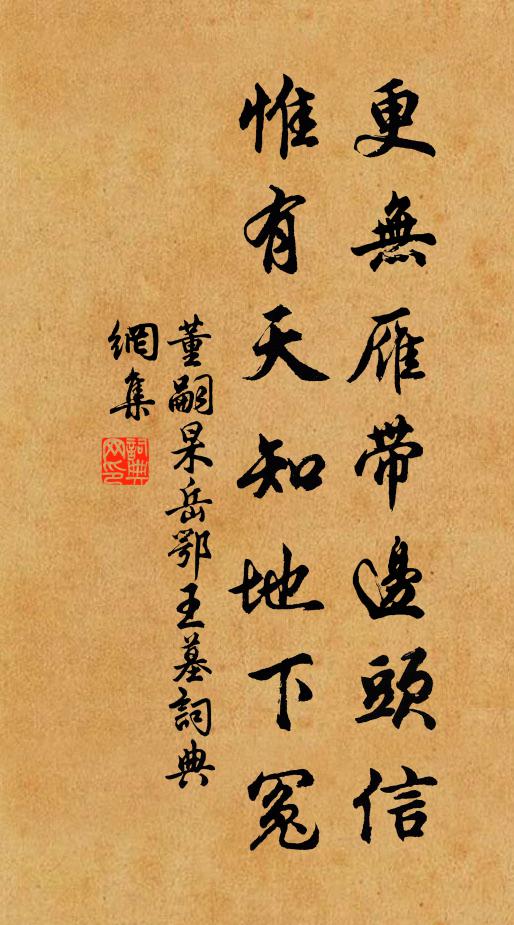 更無雁帶邊頭信
惟有天知地下冤
董嗣杲岳鄂王墓詞典
網集
詞典網印